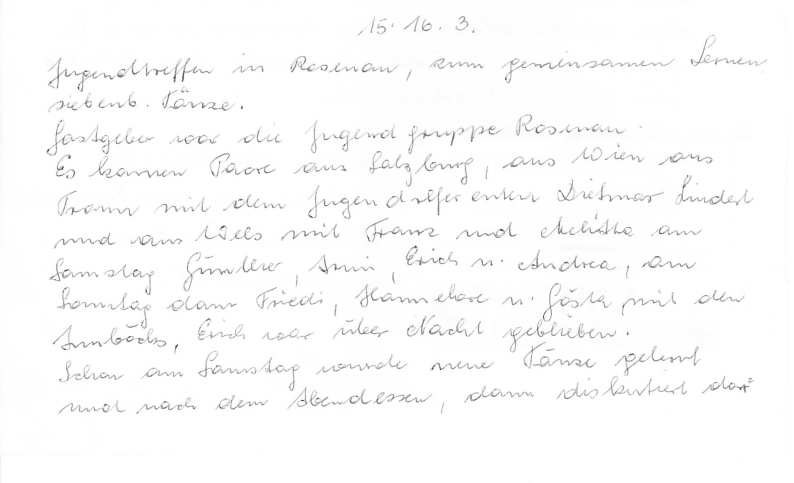 15. 16. 3.
Jugendtreffen in Rosenau, zum gemeinsamen Lernen
siebenb. Tänze.
Gastgeber war die Jugendgruppe Rosenau.
Es kamen Paare aus Salzburg, aus Wien aus
Traun mit dem Jugendreferenten Dietmar Lindert
und aus Wels mit Franz und Melitta am
Samstag Günther, Anni, Erich u. Andrea, am
Sonntag dann Friedi, Hannelore u. Gösta mit den
Ambächs, Erich war über Nacht geblieben.
Schon am Samstag wurde neue Tänze gelernt
und nach dem Abendessen, dann diskutiert